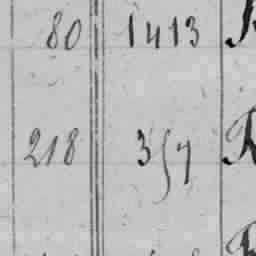 80 1413
218 357